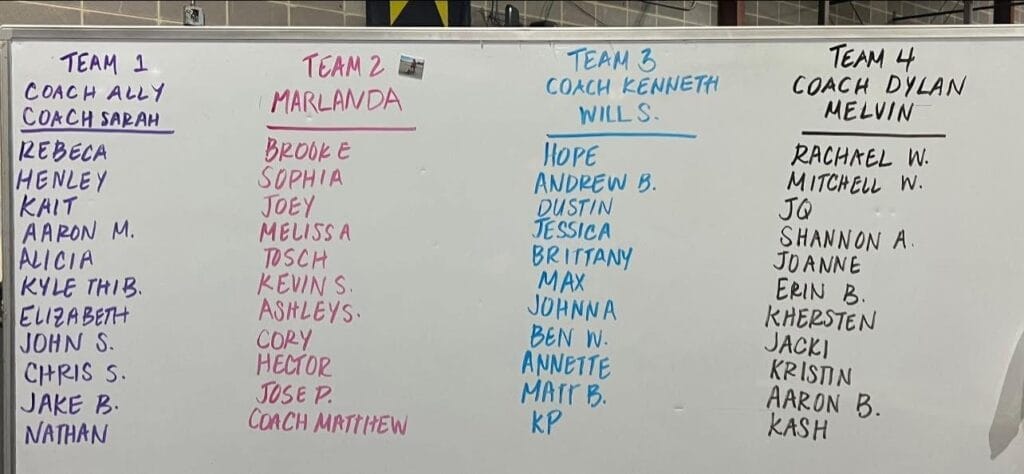 TEAM 1
COACH ALLY
COACH SARAH
REBECA
HENLEY
KAIT
AARON M.
ALICIA
KYLE THIB.
ELIZABETH
JOHN S.
CHRIS S.
JAKE B.
NATHAN
TEAM 2
MARLANDA
BROOKE
SOPHIA
JOEY
MELISSA
TOSCH
KEVIN S.
ASHLEY S.
CORY
HECTOR
JOSE P.
COACH MATTHEW
TEAM 3
COACH KENNETH
WILL S.
HOPE
ANDREW B.
DUSTIN
JESSICA
BRITTANY
MAX
JOHNNA
BEN W.
ANNETTE
MATT B.
KP
TEAM 4
COACH DYLAN
MELVIN
RACHAEL W.
MITCHELL W.
JQ
SHANNON A.
JOANNE
ERIN B.
KHERSTEN
JACKI
KRISTIN
AARON B.
KASH